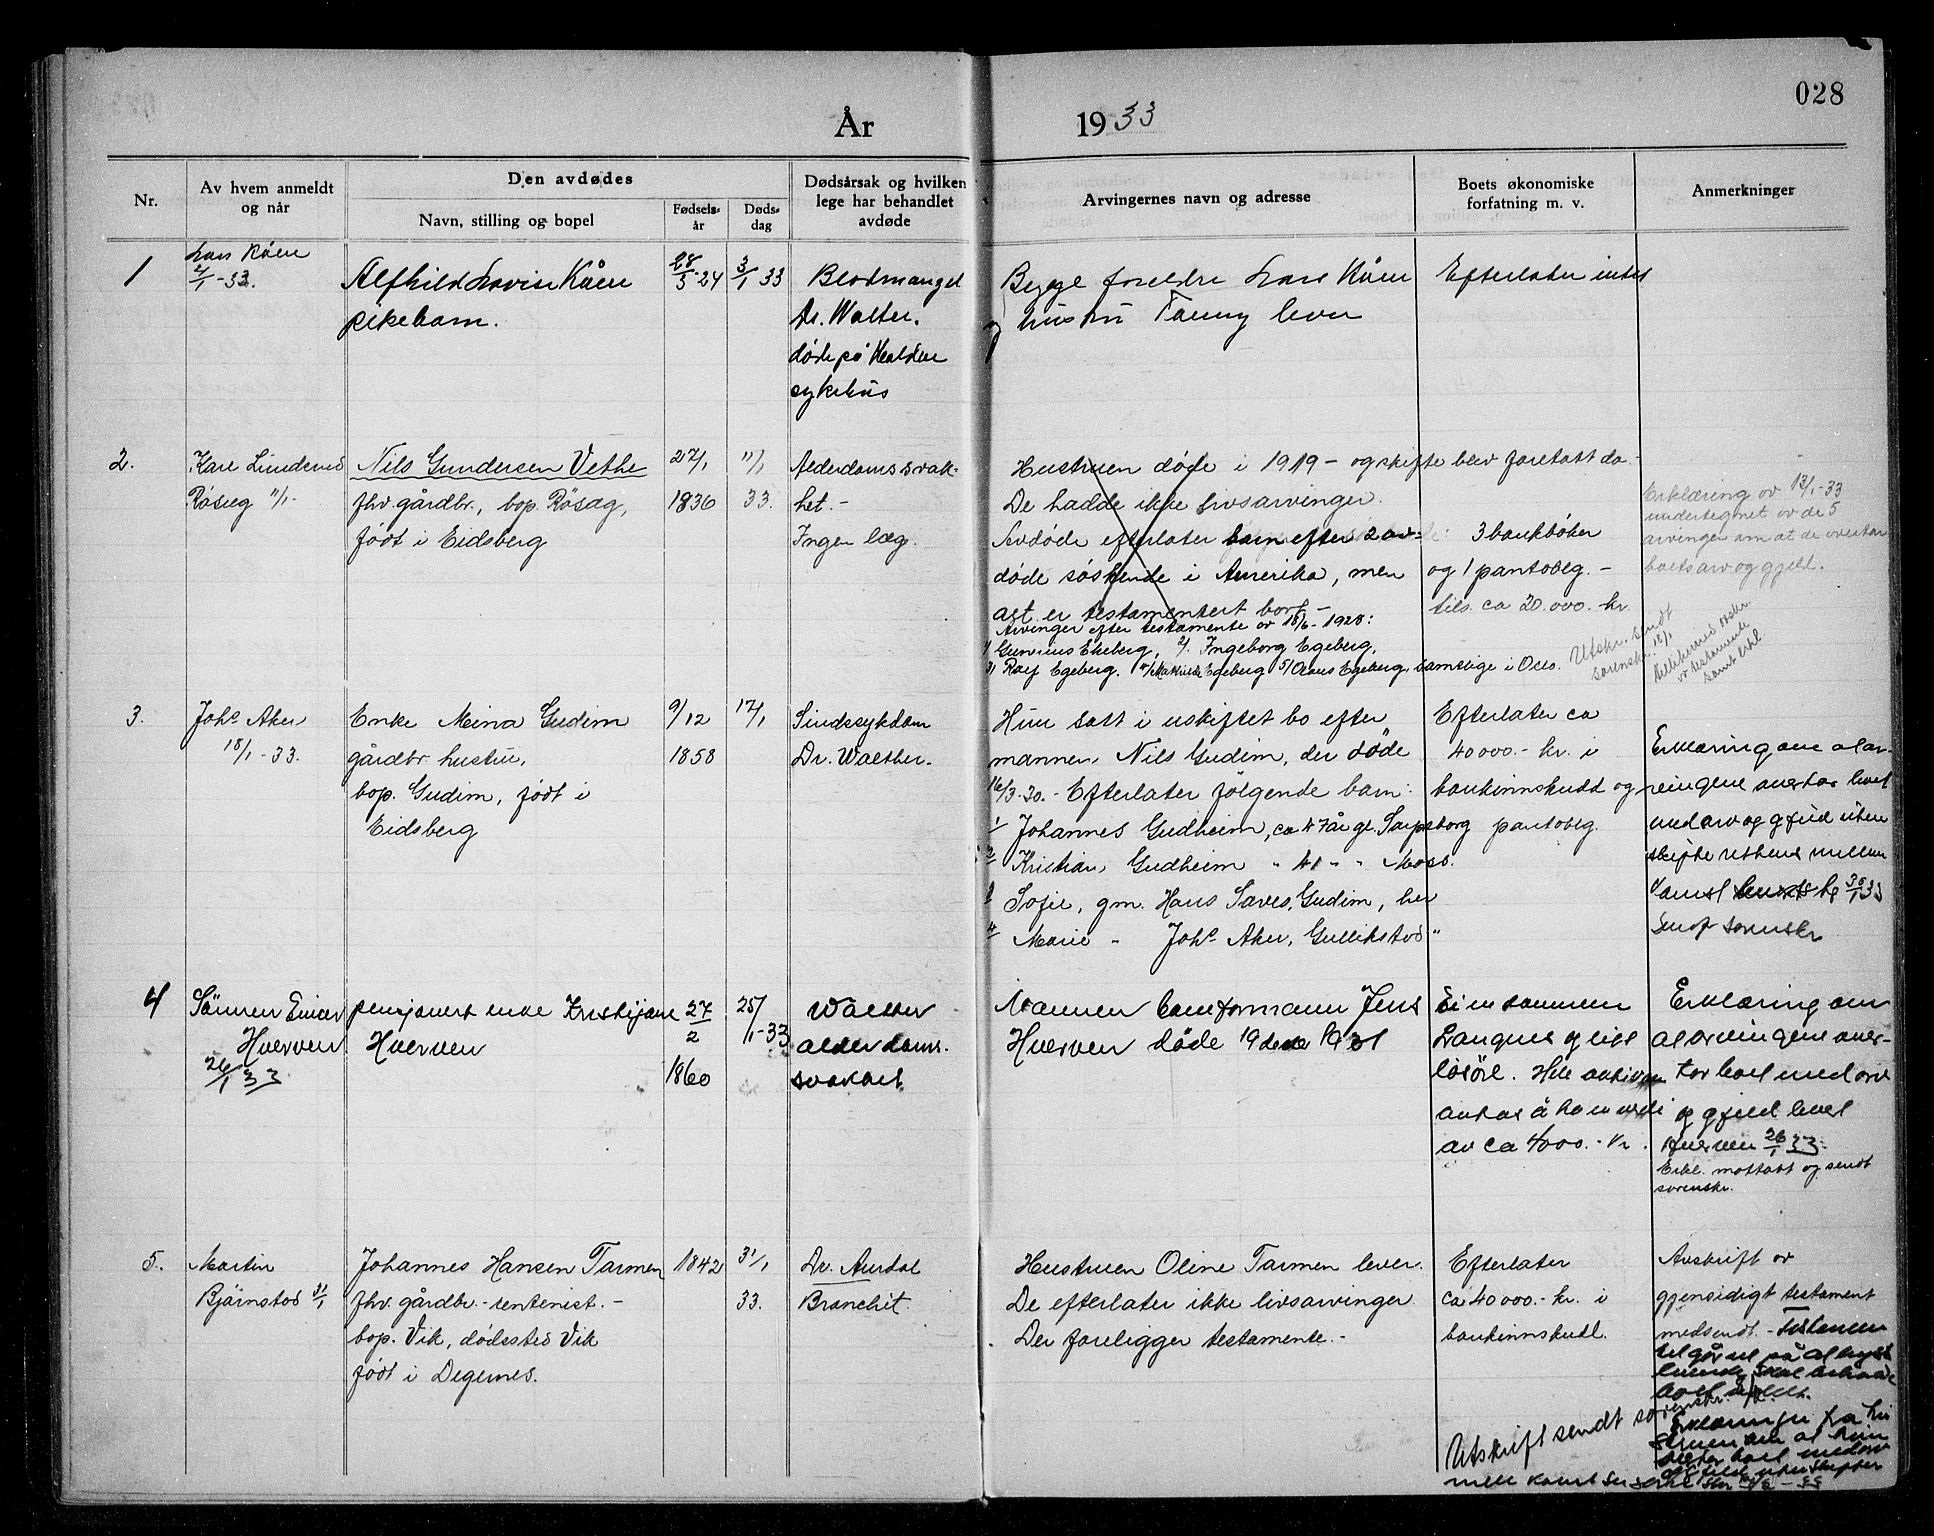 028
År 1933
Nr.
Av hvem anmeldt
og når
Den avdødes
Navn, stilling og bopel
Fødsels-
år
Døds-
dag
Dødsårsak og hvilken
lege har behandlet
avdøde
Arvingernes navn og adresse
Boets økonomiske
forfatning m. v.
Anmerkninger
1
Lars Kåen
4/1-33.
Alfhild Lovise Kåen
pikebarn.
28/3-24
3/1 33
Blodmangel
Dr. Walter.
døde på Halden
sykehus
Begge foreldre Lars Kåen
og hustru Fanny lever
Efterlater intet
2.
Røsæg 11/1.
Nils Gundersen Vethe
fhv. gårdbr., bop. Røsæg,
født i Eidsberg
27/1
1836
11/1
33.
Alderdomssvak-
het.-
Ingen læge.
Hustruen døde i 1919 - og skifte blev foretatt da.
De hadde ikke livsarvinger.
Avdøde efterlater barn efter 2 av-
døde søskende i Amerika, men
alt er testamentert bort -
Arvinger efter testamente av 18/6-1928:
1/ Gunerius Egeberg, 2/ Ingeborg Egeberg,
3/ Ralf Egeberg. 4/ Mathilde Egeberg 5/ Olaus Egeberg, samtlige i Oslo.
3 bankbøker
og 1 pantoblg. -
tils. ca 20.000. kr.
Erklæring av 13/1-33
undertegnet av de 5
arvinger om at de overtar
boets arv og gjeld.
Utskr. sendt
sorenskr. 12/1
3.
Johs Aker
18/1-33.
Enke Mina Gudim
gårdbr. hustru,
bop. Gudim, født i
Eidsberg
9/12
1858
17/1
Sindssykdom
Dr. Walther.
Hun satt i uskiftet bo efter
mannen, Nils Gudim, der døde
16/3-30. - Efterlater følgende barn:
1/ Johannes Gudheim, ca 47 år gl. Sarpsborg
2/ Kristian, Gudheim " 41 " " Moss.
3/ Sofie, gm. Hans Sæves, Gudim, her
4/ Marie " Johs Aker, Gullikstad "
Efterlater ca
40000.- kr. i
bankinnskudd og
pantoblg.
Erklæring om at ar-
vingene overtar boet
med arv og gjeld uten
skifterettens mellem
sorenskr
4
Sønnen Einar
Hverven
26/1 33
pensjonert enke Kristijane
Hverven
27/2
1860
25/1-33
Walther
alderdoms.
svakhet
Mannen baneformann Jens
Hverven døde 19 des 1931
Ei innsammen
løsøre.
antas å ha en verdi
av ca 4000. - kr.
Erklæring om
at arvingene over-
tar boet med arv
og gjeld levert
Hverven 26/1 33.
Erkl. mottatt og sendt
sorenskr.
5.
Martin
Bjørnstad 31/1
Johannes Hansen Tarmen
fhv. gårdbr.- rentenist. -
bop. Vik, dødssted Vik
født i Degernes.
1842
31/1
33.
Dr. Aurdal
Bronchit.
Hustruen Oline Tarmen lever.
De efterlater ikke livsarvinger
Der foreligger testamente. -
Efterlater
ca 40000.- kr. i
bankinnskudd.
Avskrift av
gjensidigt testament
medsendt -
Utskrift sendt sorenskr.